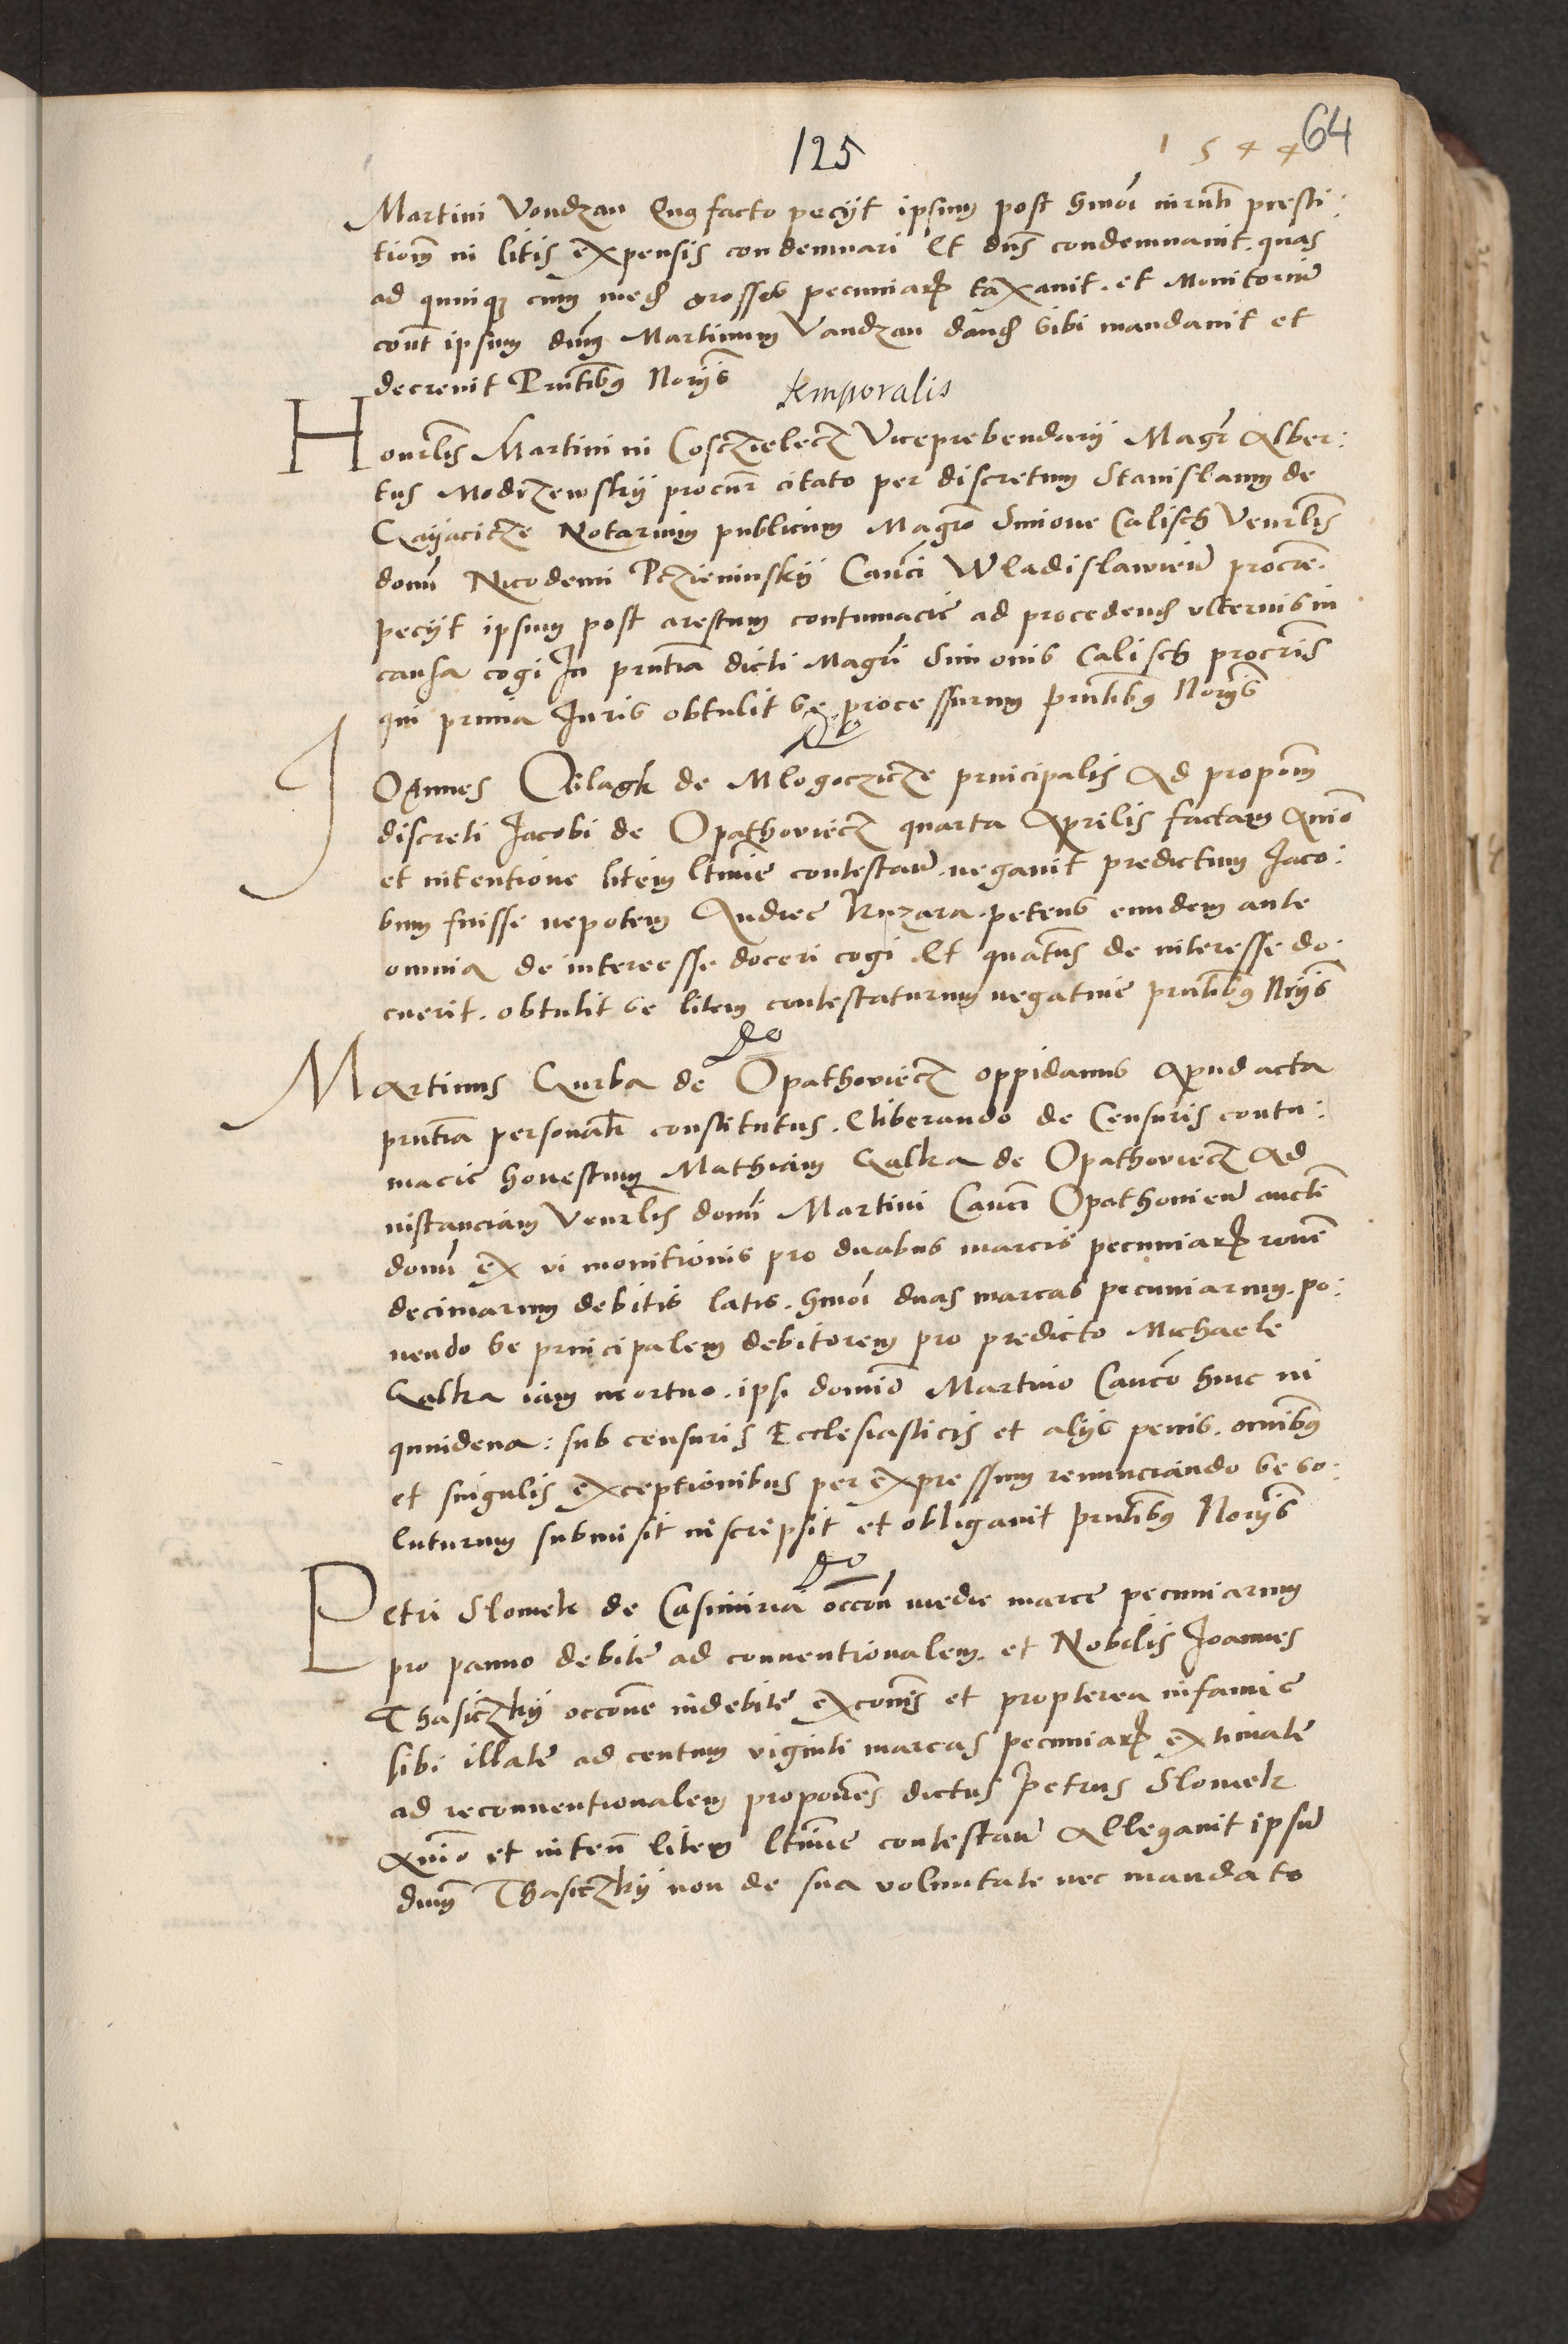 125
1544 64
Martini Vondzan Quo facto pecijt ipsum post hmoi iurnti presti:
tionem in litis expensis condemnari Et dns condemnauit. quas
ad quinque cum med grossis pecuniar taxauit. et Monitoriu
cont ipsum dnm Martinum Vandzan dand sibi mandauit et
decreuit Pntibus Norijs
temporalis
Honrlis Martini in Cosczielecz Viceprebendarij Magr Alber:
tus Modrzewskij procur citato per discretum Stanislaum de
Cayacicze Notarium publicum Magro Simone Calisch Venrlis
domi Nicodemi Pczieninskij Canci Wladislawien procre.
pecijt ipsum post arestum contumacie ad procedend vlterius in
causa cogi In pntia dicti Magri Simonis Calisch procris
qui pmia Iuris obtulit se processurum pntibus Norijs
do
Ioannes Oblagk de Mlogoczicze principalis Ad propom
discreti Jacobi de Opathoviecz quarta Aprilis factam Animo
et intentione litem ltime contestan. negauit predictum Jaco:
bum fuisse nepotem Andree Kuzara. petens eundem ante
omnia de interesse doceri cogi Et quatus de interesse do:
cuerit. obtulit se litem contestaturum negatiue pntibus Nrijs
do
Martinus Curba de Opathoviecz oppidanus Apud acta
pntia personalr constitutus. Eliberando de Censuris contu:
macie honestum Mathiam Galka de Opathoviecz Ad
instanciam Venrlis domi Martini Canci Opathonien aucti
domi ex vi monitionis pro duabus marcis pecuniar rone
decimarum debitis latis. hmoi duas marcas pecuniarum. po:
nendo se principalem debitorem pro predicto Michaele
Galka iam mortuo. ipsi domino Martino Canco hinc in
quindena: sub censuris Ecclesiasticis et alijs penis. omnibus
et singulis exceptionibus per expressum renunciando se so:
luturum submisit inscripsit et obligauit pntibus Norijs
do
Petri Slomek de Casimiria occon medie marce pecuniarum
pro panno debite ad conuentionalem. et Nobilis Joannes
Thasiczkij occone indebite excois et propterea infamie
sibi illate ad centum viginti marcas pecuniar extimate
ad reconuentionalem propones dictus Petrus Slomek
Animo et inten litem ltime contestan Allegauit ipsu
dnm Thasiczkij non de sua voluntate nec mandato